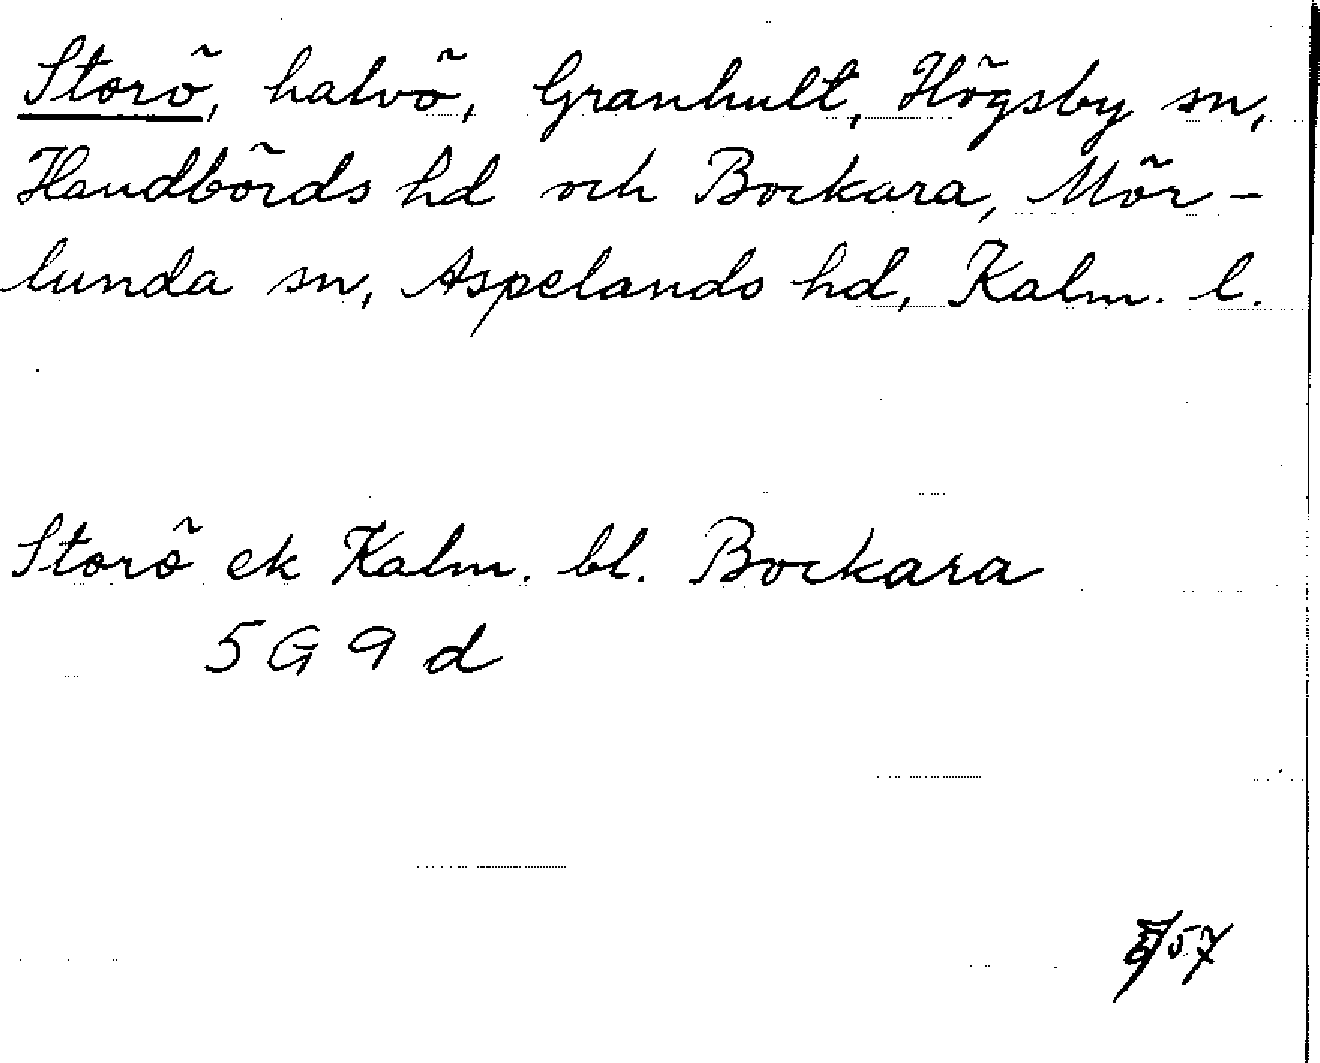 Storö, halvö, Granhult, Högsby sn,
Handbörds hd och Bockara, Mör-
lunda sn, Aspelands hd, Kalm. l.
Storö ek Kalm. bl. Bockara
5 G 9 d
57